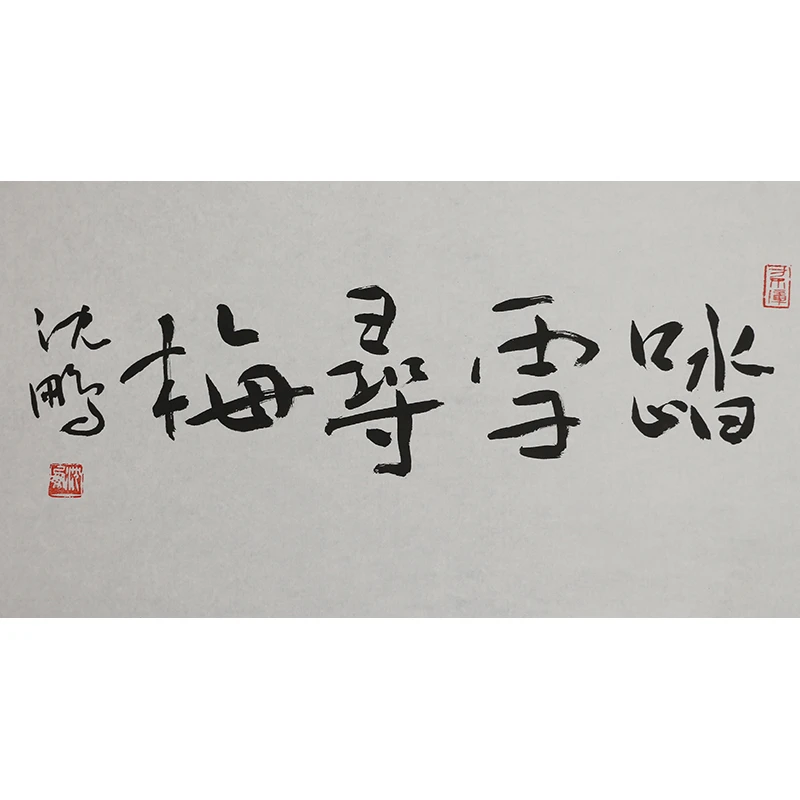 踏雪尋梅
沈鵬